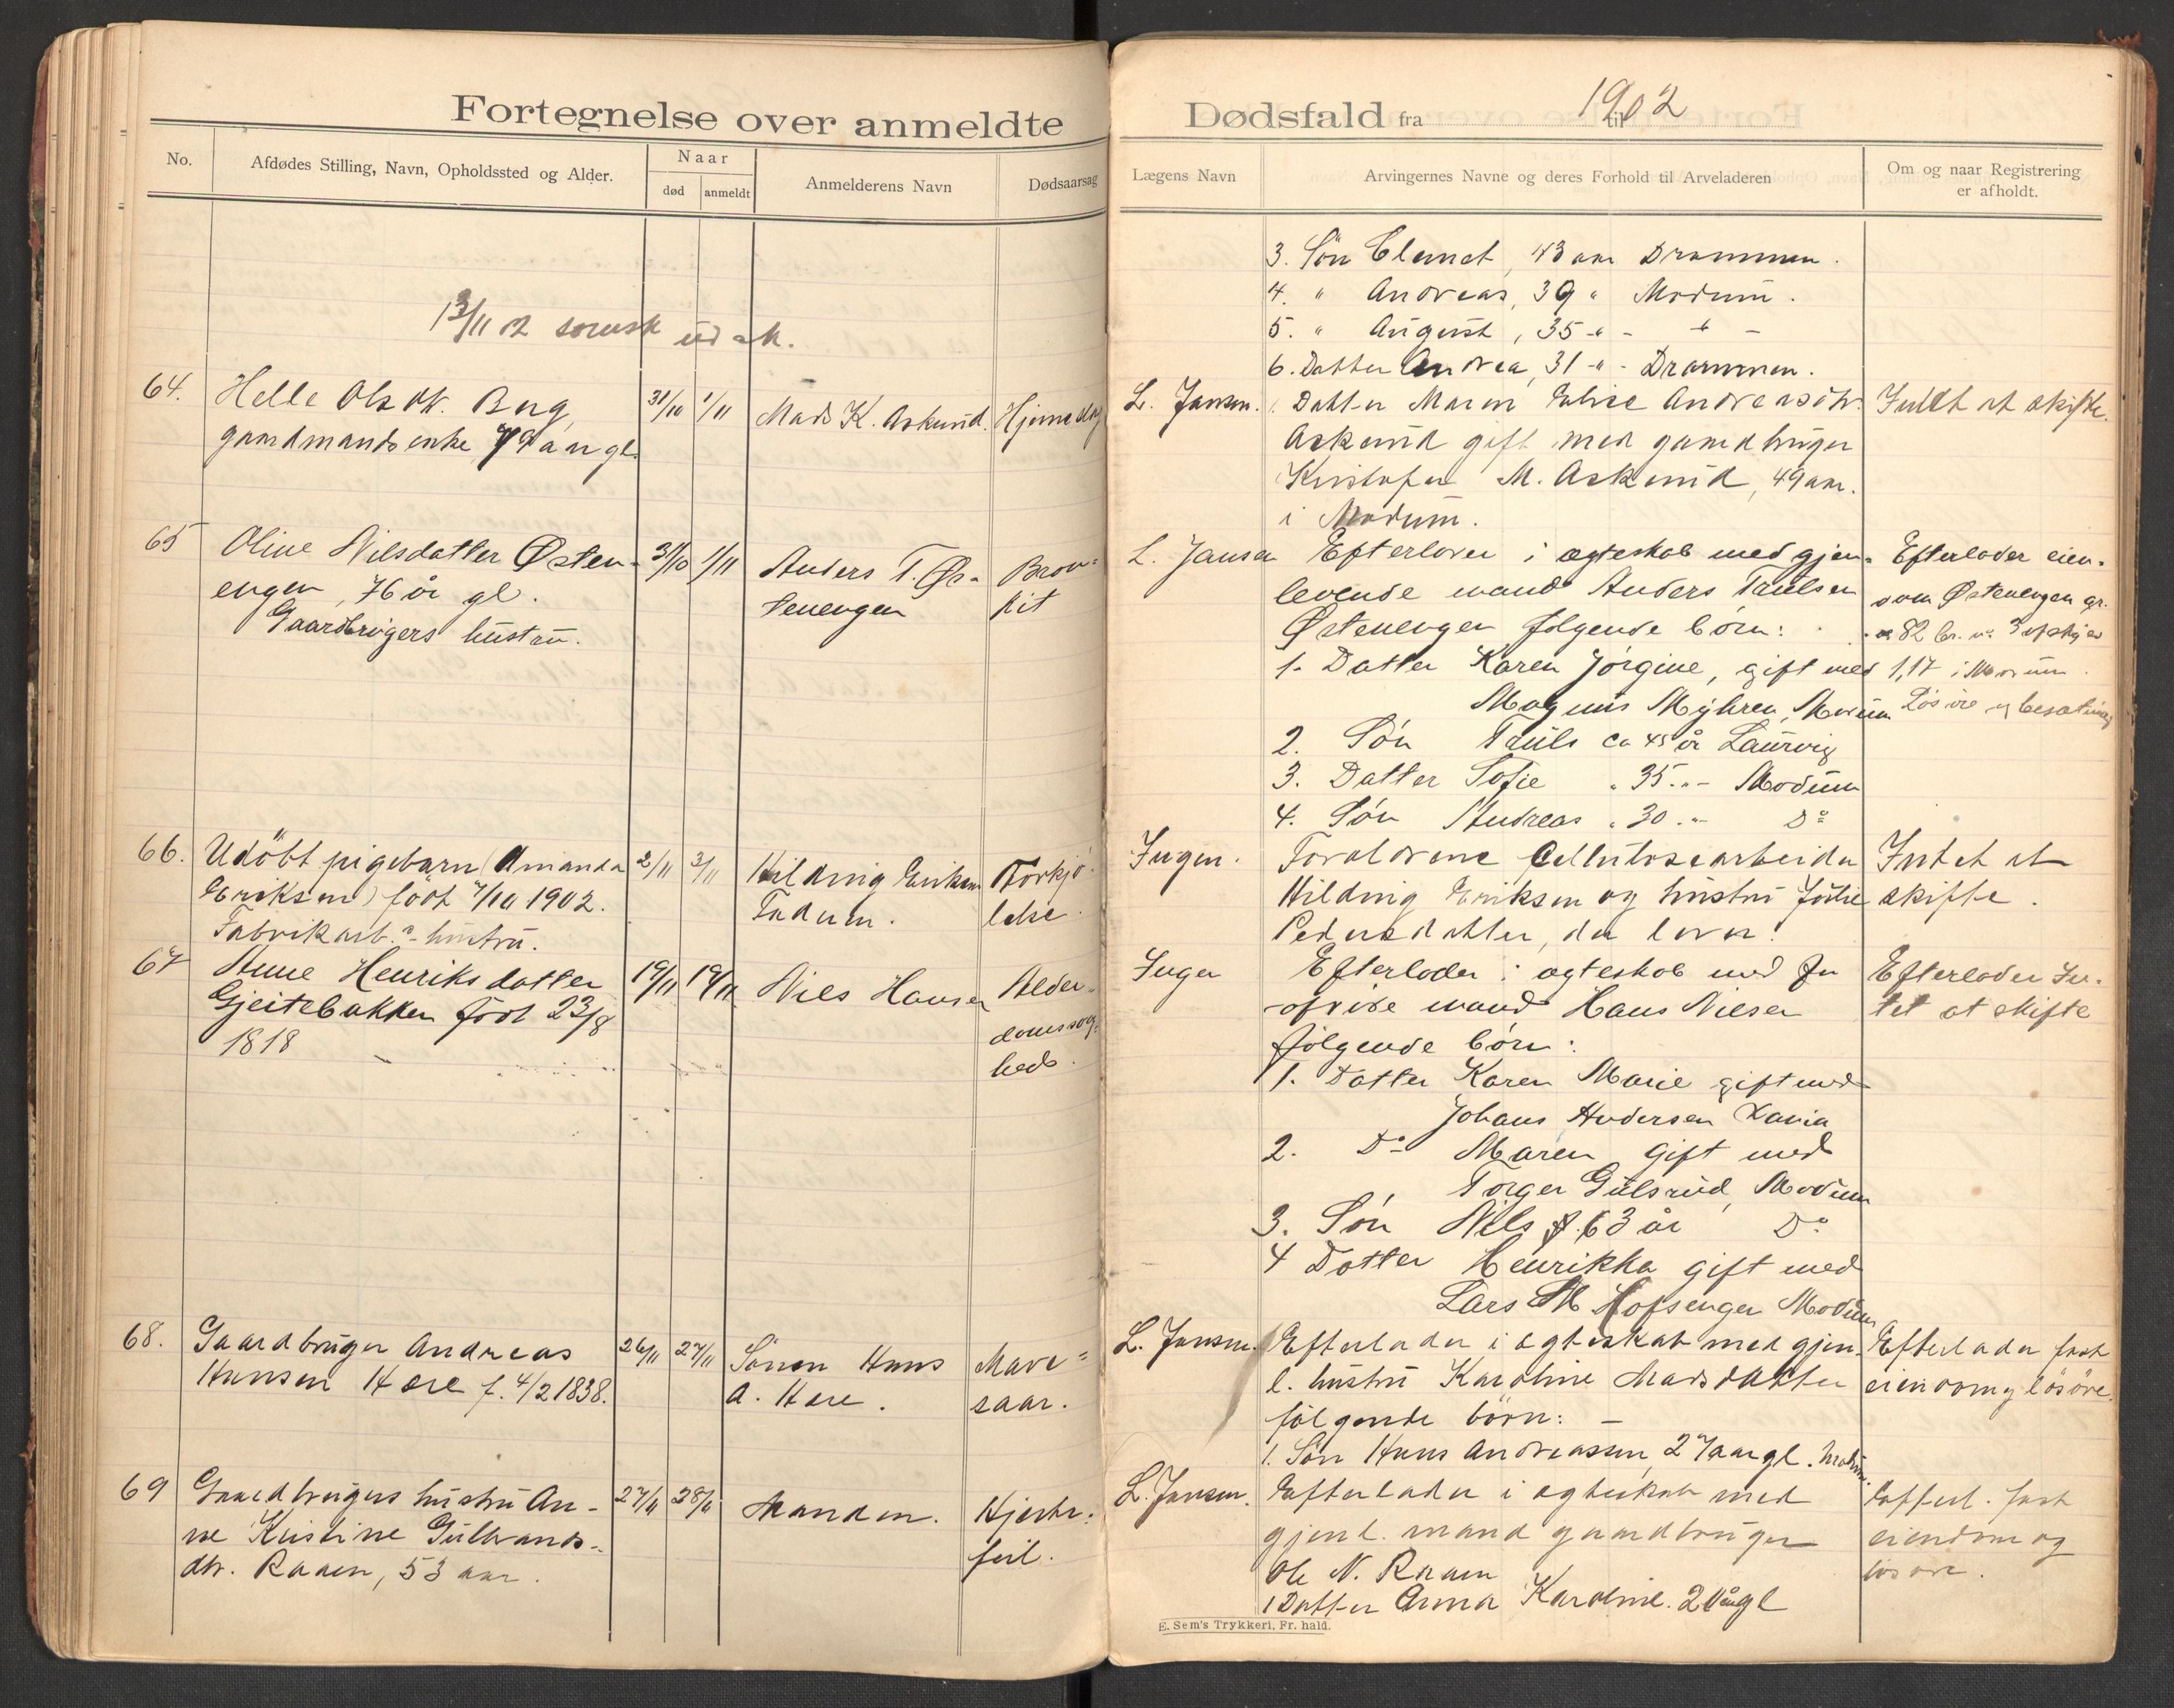 Fortegnelse over anmeldte
No.
Afdødes Stilling, Navn, Opholdssted og Alder.
Naar
død
anmeldt
Anmelderens Navn
Dødsaarsag
13/11 02
64. Helle Olsdtr. Berg, 31/10 1/11 Mads K. Askerud. Hjerneslag
gaardmandsenke 79 aar gl.
65 Oline Nilsdatter Østen- 31/10 1/11 Anders T. Øs- Bron-
engen, 76 år gl. tenengen kit
Gaardbrugers hustru.
66. Udöbt pigebarn (Amanda 2/11 3/11 Hilding Eriksen Forkjö-
Eriksen) födt 7/10 1902. Fadum. lelse.
Fabrikarb. hustru.
67 Anne Henriksdatter 19/11 19/11 Niels Hansen Alder-
Gjeitebakken födt 23/8 domssvag-
1818 hed.
68. Gaardbruger Andreas 26/11 27/11 Sönnen Hans Mave-
Hansen Hære f. 4/2 1838. A. Hære. saar.
69 Gaardbrugers hustru An- 27/11 28/11 Manden. Hjerte-
ne Kristine Gulbrands- feil.
dtr. Raaen, 53 aar.
Dødsfald fra til 1902
Lægens Navn
Arvingernes Navne og deres Forhold til Arveladeren
Om og naar Registrering
er afholdt.
3. Sön Clemet, 43 aar Drammen.
4. " Andreas, 39 " Modum.
5. " August, 35 - " -
6. Datter Andrea, 31 - " - Drammen.
L. Jansen. 1. Datter Maren Elise Andreasdtr. Intet at skifte.
Askerud gift med gaardbruger
Kristofer M. Askerud, 49 aar.
i Modum.
L. Jansen Efterlader i ægteskab med gjen- Efterlader eien-
levende mand Anders Trulsen dom Østenengen gr.
Østenengen følgende börn: no 82 br. no 3 af skyld
1. Datter Karen Jörgine, gift med 1,17 i Modum.
Magnus Myhren, Modum Løsøre og besætning
2. Sön Truls ca 45 år Laurvig
3. Datter Sofie " 35 " - Modum
4. Sön Andreas " 30 " - Do
Ingen. Forældrene Cellulosearbeider Intet at
Hilding Eriksen og hustru Julie skifte.
Pedersdatter, der lever.
Ingen Efterlader i ægteskab med for Efterlader In-
afdöde mand Hans Nilsen tet at skifte
følgende börn:
1. Datter Karen Marie gift med
Johans Andersen
2. Do Maren gift med
Torger Gulsrud, Modum
3. Sön Nils 63 år Do
4 Datter Henrikka gift med
Lars M Hofsengen Modum
L. Jansen. Efterlader i ægteskab med gjen- Efterlader fast
l. hustru Karoline Madsdatter eiendom og lösöre.
følgende börn: -
1. Sön Hans Andreassen, 27 aar gl. Modum.
L. Jansen. Efterlader i ægteskab med Efterl. fast
gjenl. mand gaardbruger eiendom og
Ole N. Raaen lösöre.
1 Datter Anna Karoline. 20 år gl
E. Sem's Trykkeri, Fr. hald.